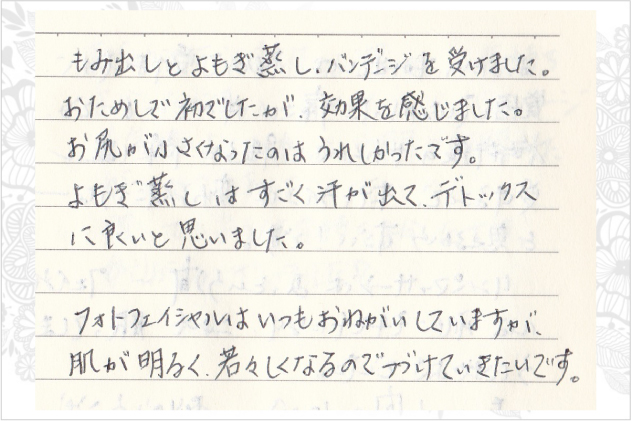 もみ出しとよもぎ蒸し、バンデージを受けました。
おためしで初でしたが、効果を感じました。
お尻が小さくなったのはうれしかったです。
よもぎ蒸しはすごく汗が出て、デトックス
に良いと思いました。
フォトフェイシャルはいつもおねがいしていますが、
肌が明るく、若々しくなるのでつづけていきたいです。